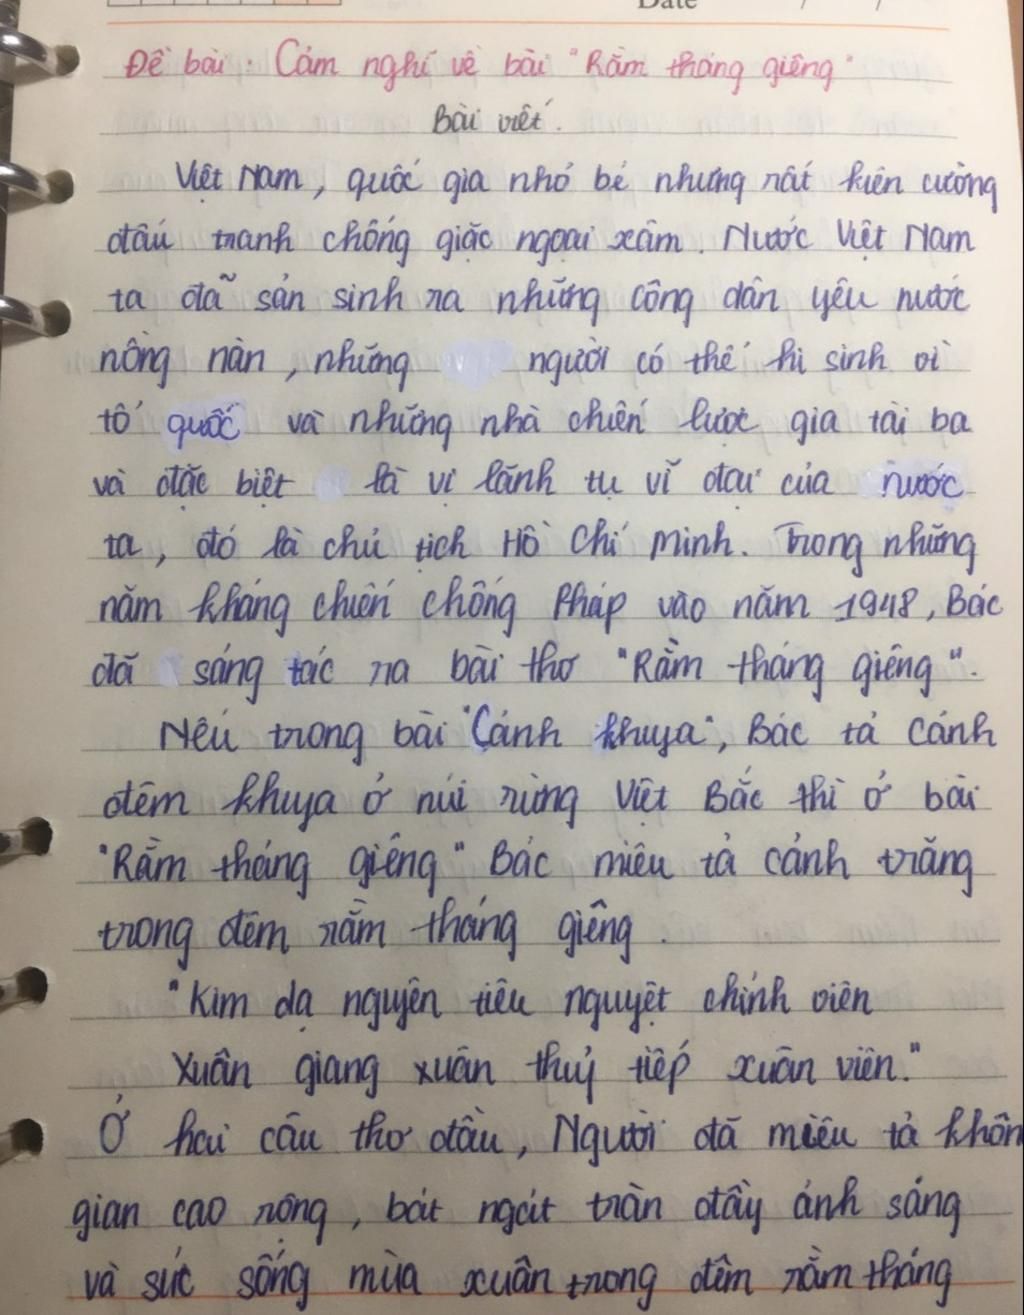 Date / /
Đề bài: Cảm nghĩ về bài "Rằm tháng giêng"
Bài viết.
Việt Nam, quốc gia nhỏ bé nhưng rất kiên cường
đấu tranh chống giặc ngoại xâm. Nước Việt Nam
ta đã sản sinh ra những công dân yêu nước
nồng nàn, những người có thể hi sinh vì
tổ quốc và những nhà chiến lược gia tài ba
và đặc biệt là vị lãnh tụ vĩ đại của nước
ta, đó là chủ tịch Hồ Chí Minh. Trong những
năm kháng chiến chống Pháp vào năm 1948, Bác
đã sáng tác ra bài thơ "Rằm tháng giêng".
Nếu trong bài "Cảnh khuya", Bác tả cảnh
đêm khuya ở núi rừng Việt Bắc thì ở bài
"Rằm tháng giêng" Bác miêu tả cảnh trăng
trong đêm rằm tháng giêng.
"Kim dạ nguyên tiêu nguyệt chính viên
Xuân giang xuân thuỷ tiếp xuân viên."
Ở hai câu thơ đầu, Người đã miêu tả khôn
gian cao rộng, bát ngát tràn đầy ánh sáng
và sức sống mùa xuân trong đêm rằm tháng